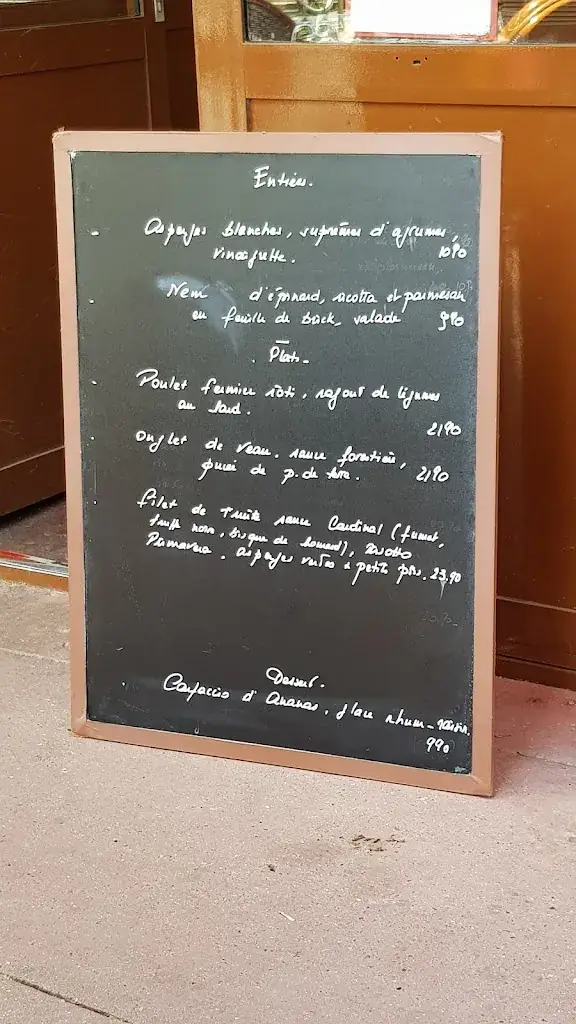 Entrées.
Asperges blanches, suprêmes d'agrumes,
vinaigrette. 10.90
Nem d'épinard, ricotta et parmesan
en feuille de brick, salade 9.90
Plats
Poulet fermier rôti, ragout de légumes
au lard.
21.90
Onglet de veau. sauce forestière,
purée de p. de terre. 21.90
Filet de truite sauce Cardinal (fumet,
truffe noire, bisque de homard), Risotto
Primavera. asperges vertes & petits pois. 23.90
Dessert.
Carpaccio d'Ananas, glace rhum-raisin.
9.90